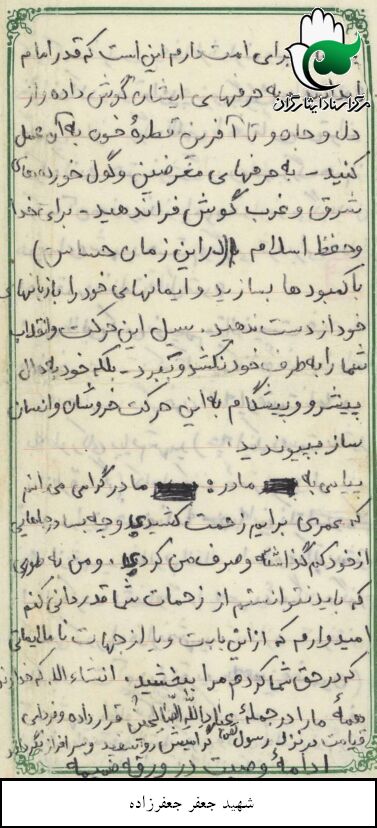 برای امت دارم این است که قدر امام
به حرفهای ایشان گوش داده و از
دل و جان و تا آخرین قطرهٔ خون به آن عمل
کنید - به حرفهای مغرضین و گول خورده‌های
شرق و غرب گوش فرا ندهید - برای خدا
و حفظ اسلام (در این زمان حساس)
با کمبودها بسازید و ایمانهای خود را با زبانهای
خود از دست ندهید. سیل این حرکت و انقلاب
شما را به طرف خود نکشد و نبرد - بلکه خود به دنبال
پیشرو و پیشگام به این حرکت خروشان و انسان
ساز بپیوندید.
پیامی به مادر: مادر گرامی می‌دانم
که عمری برایم زحمت کشیدی و چه بسا در جاهایی
از خود کم گذاشته و صرف من کردی، و من به طوری
که باید نتوانستم از زحمات شما قدردانی کنم
امیدوارم که از این بابت و یا از جهات ناملایماتی
که در حق شما کردم مرا ببخشید. انشاء الله که خداوند
همهٔ ما را در جملهٔ عباد الله الصالحین قرار داده و فردای
قیامت در نزد رسول روسفید و سرافراز بگرداند
ادامهٔ وصیت در ورقه ضمیمه
مرکز اسناد ایثارگران
شهید جعفر جعفرزاده